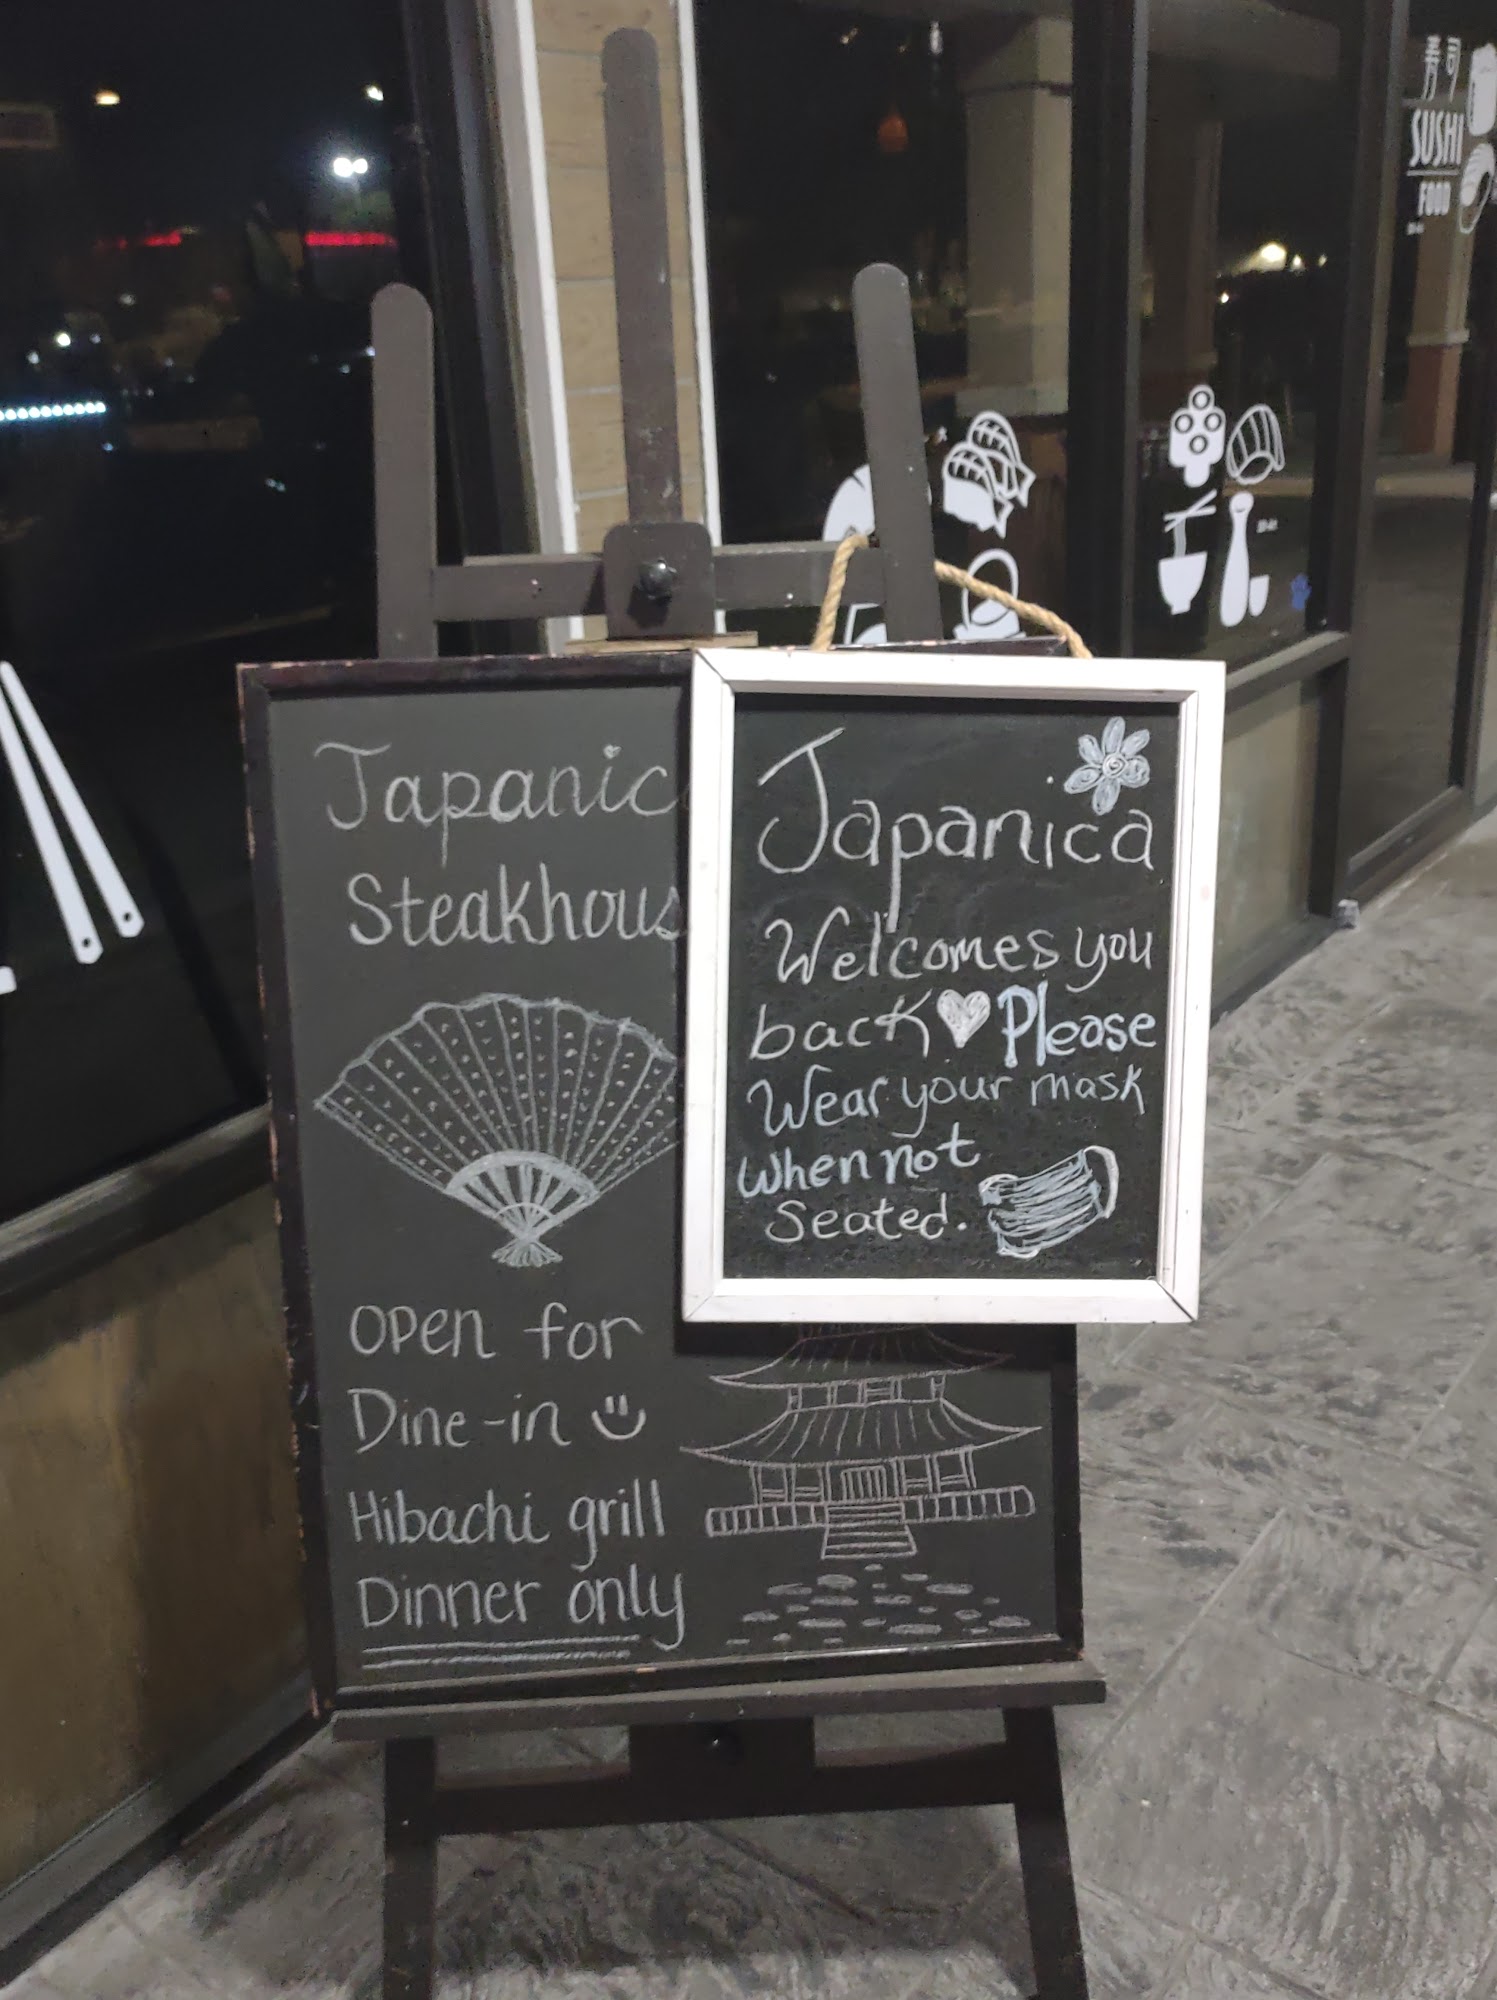 Japanic
Steakhous
Open for
Dine-in
Hibachi grill
Dinner only
Japanica
Welcomes you
back Please
Wear your mask
when not
seated.
SUSHI
FOOD